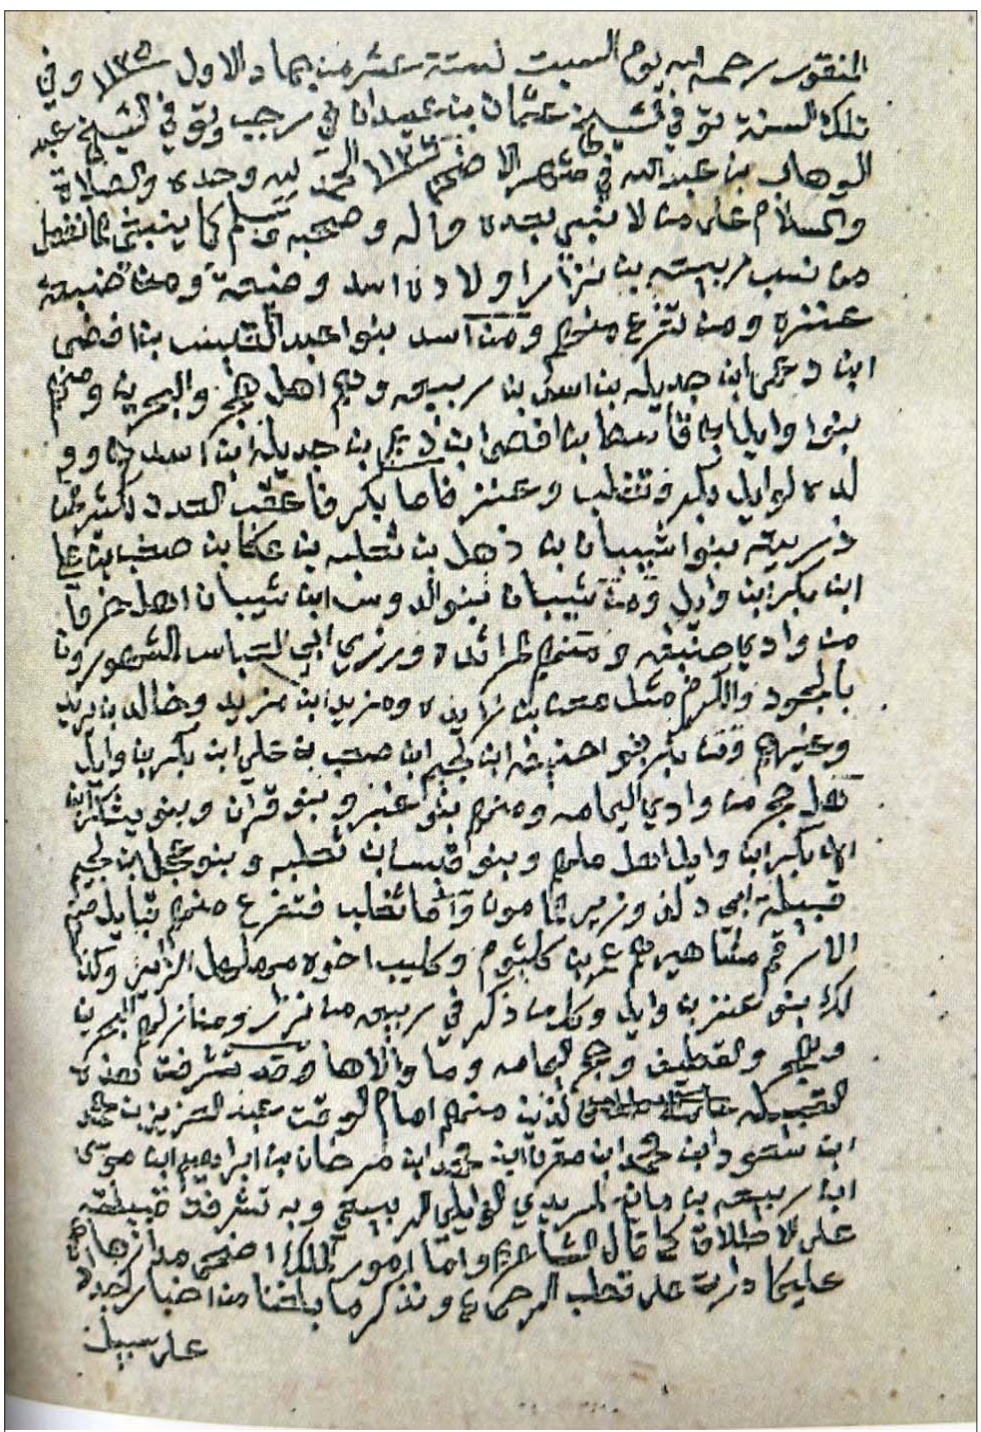 المنقور رحمه الله يوم السبت لستة عشر من جماد الاول ١١٢٥ وفي
تلك السنة توفي الشيخ عثمان بن عبدان في رجب وتوفي الشيخ عبد
الوهاب بن عبد الله في شهر الاضحى ١١٢٥ الحمد لله وحده والصلاة
والسلام على من لا نبي بعده واله وصحبه وسلم كما ينبغي
من نسب ربيعه بن نزار اولاده اسد وضبيعة ومن ضبيعة
عنزه ومن تفرع منهم ومن اسد بنوا عبد القيس بن افصى
ابن دعمى ابن جديله بن اسد بن ربيعه وهم اهل هجر والبحرين ومنهم
بنوا وايل بن قاسط بن افصى ابن دعمي بن جديلة ابن اسد وو
لده لوايل بكر وتغلب وعنز فاما بكر فاعقب العدد الكثير فمن
ذريته بنوا شيبان بن ذهل بن ثعلبه بن عكابه بن صعب بن علي
ابن بكر ابن وايل ومن شيبان بنو الدوس ابن شيبان اهل
من وادي حنيفه ومنهم المشهورون
بالجود والكرم مثل معن بن زايده ومزيد ابن مزيد وخالد بن يزيد
وغيرهم ومن بكر بنو حنيفه ابن لجيم ابن صعب بن علي ابن بكر بن وايل
اهل حجر من وادي اليمامه ومنهم بنو عنبر وبنو قران وبنو يشكر
ابن بكر ابن وايل اهل ملهم وبنو قيس ابن ثعلبه وبنو عجل ابن لجيم
قبيلة ابي دلف وزير المامون واما تغلب فتفرع منهم قبايل منهم
الارقم مشاهيرهم عمرو بن كلثوم وكليب اخوه مهلهل الزير وكذا
لك بنو عنز بن وايل وكل من ذكر في ربيعه من نزار ومنازلهم البحرين
وهجر والقطيف وحجر اليمامه وما والاها وقد تشرفت هذه
القبيله الذين منهم امام الوقت عبد العزيز بن محمد
ابن سعود ابن محمد ابن مقرن ابن محمد ابن مرخان بن ابراهيم ابن موسى
ابن ربيعه بن مانع المريدي الوايلي الربيعي وبه تشرفت قبيلته
على الاطلاق كما قال الشاعر واما امور الملك اضحى مدارها
عليكما دارت على قطب الرحى ونذكر ما بلغنا من اخبار اجداده
على سبيل